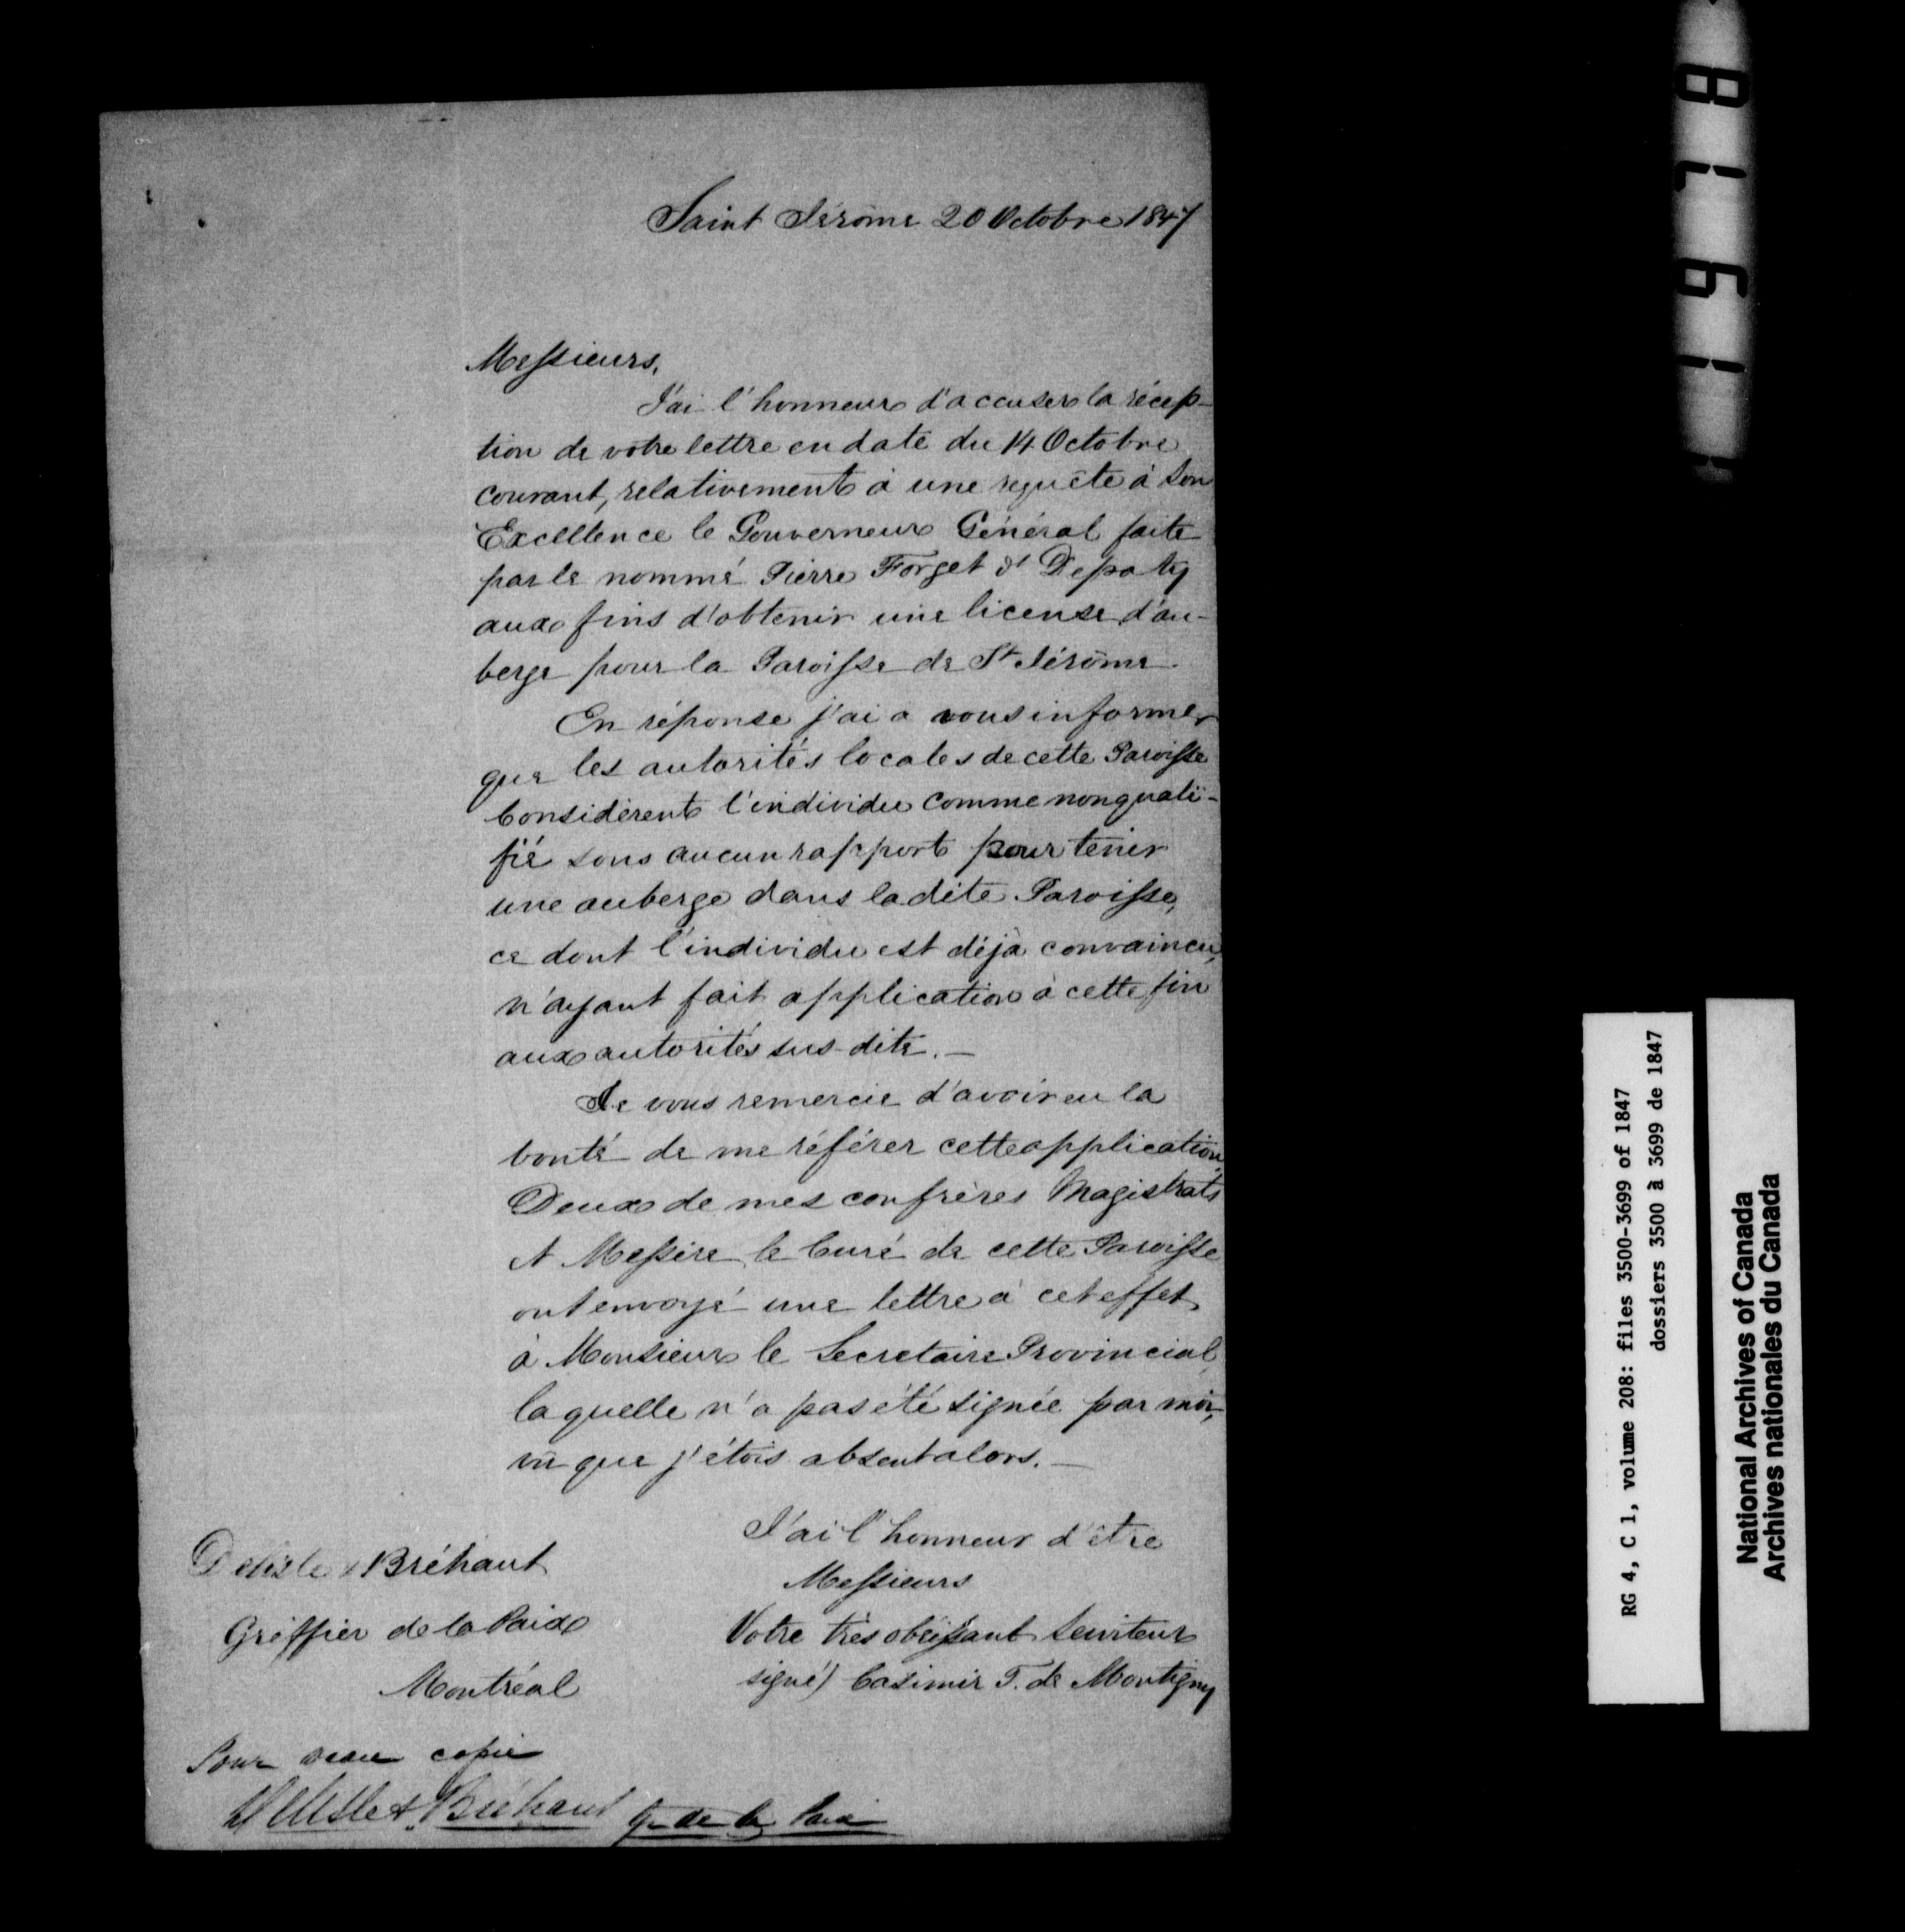 Saint Jérôme 20 Octobre 1847
Messieurs,
J'ai l'honneur d'accuser la récep-
tion de votre lettre en date du 14 Octobre
courant, relativement à une requête à Son
Excellence le Gouverneur Général faite
par le nommé Pierre Forget dt Depaty
aux fins d'obtenir une license d'au-
berge pour la Paroisse de St Jérôme.
En réponse j'ai a vous informer
que les autorités locales de cette Paroisse
considèrent l'individu comme non quali-
fié sous aucun rapport pour tenir
une auberge dans la dite Paroisse,
ce dont l'individu est déjà convaincu,
n'ayant fait application à cette fin
aux autorités sus-dite. —
Je vous remercie d'avoir eu la
bonté de me référer cette application,
Deux de mes confrères Magistrats
et Messire le Curé de cette Paroisse
ont envoyé une lettre à cet effet
à Monsieur le Secretaire Provincial,
laquelle n'a pas été signée par moi,
vû que j'étois absent alors. —
J'ai l'honneur d'être
Messieurs
Votre très obéissant serviteur
signé) Casimir T. de Montigny
Delisle & Bréhaut
Greffier de la Paix
Montréal
Pour vraie copie
Delisle & Bréhaut G. de la Paix
1678
RG 4, C 1, volume 208: files 3500-3699 of 1847
dossiers 3500 à 3699 de 1847
National Archives of Canada
Archives nationales du Canada